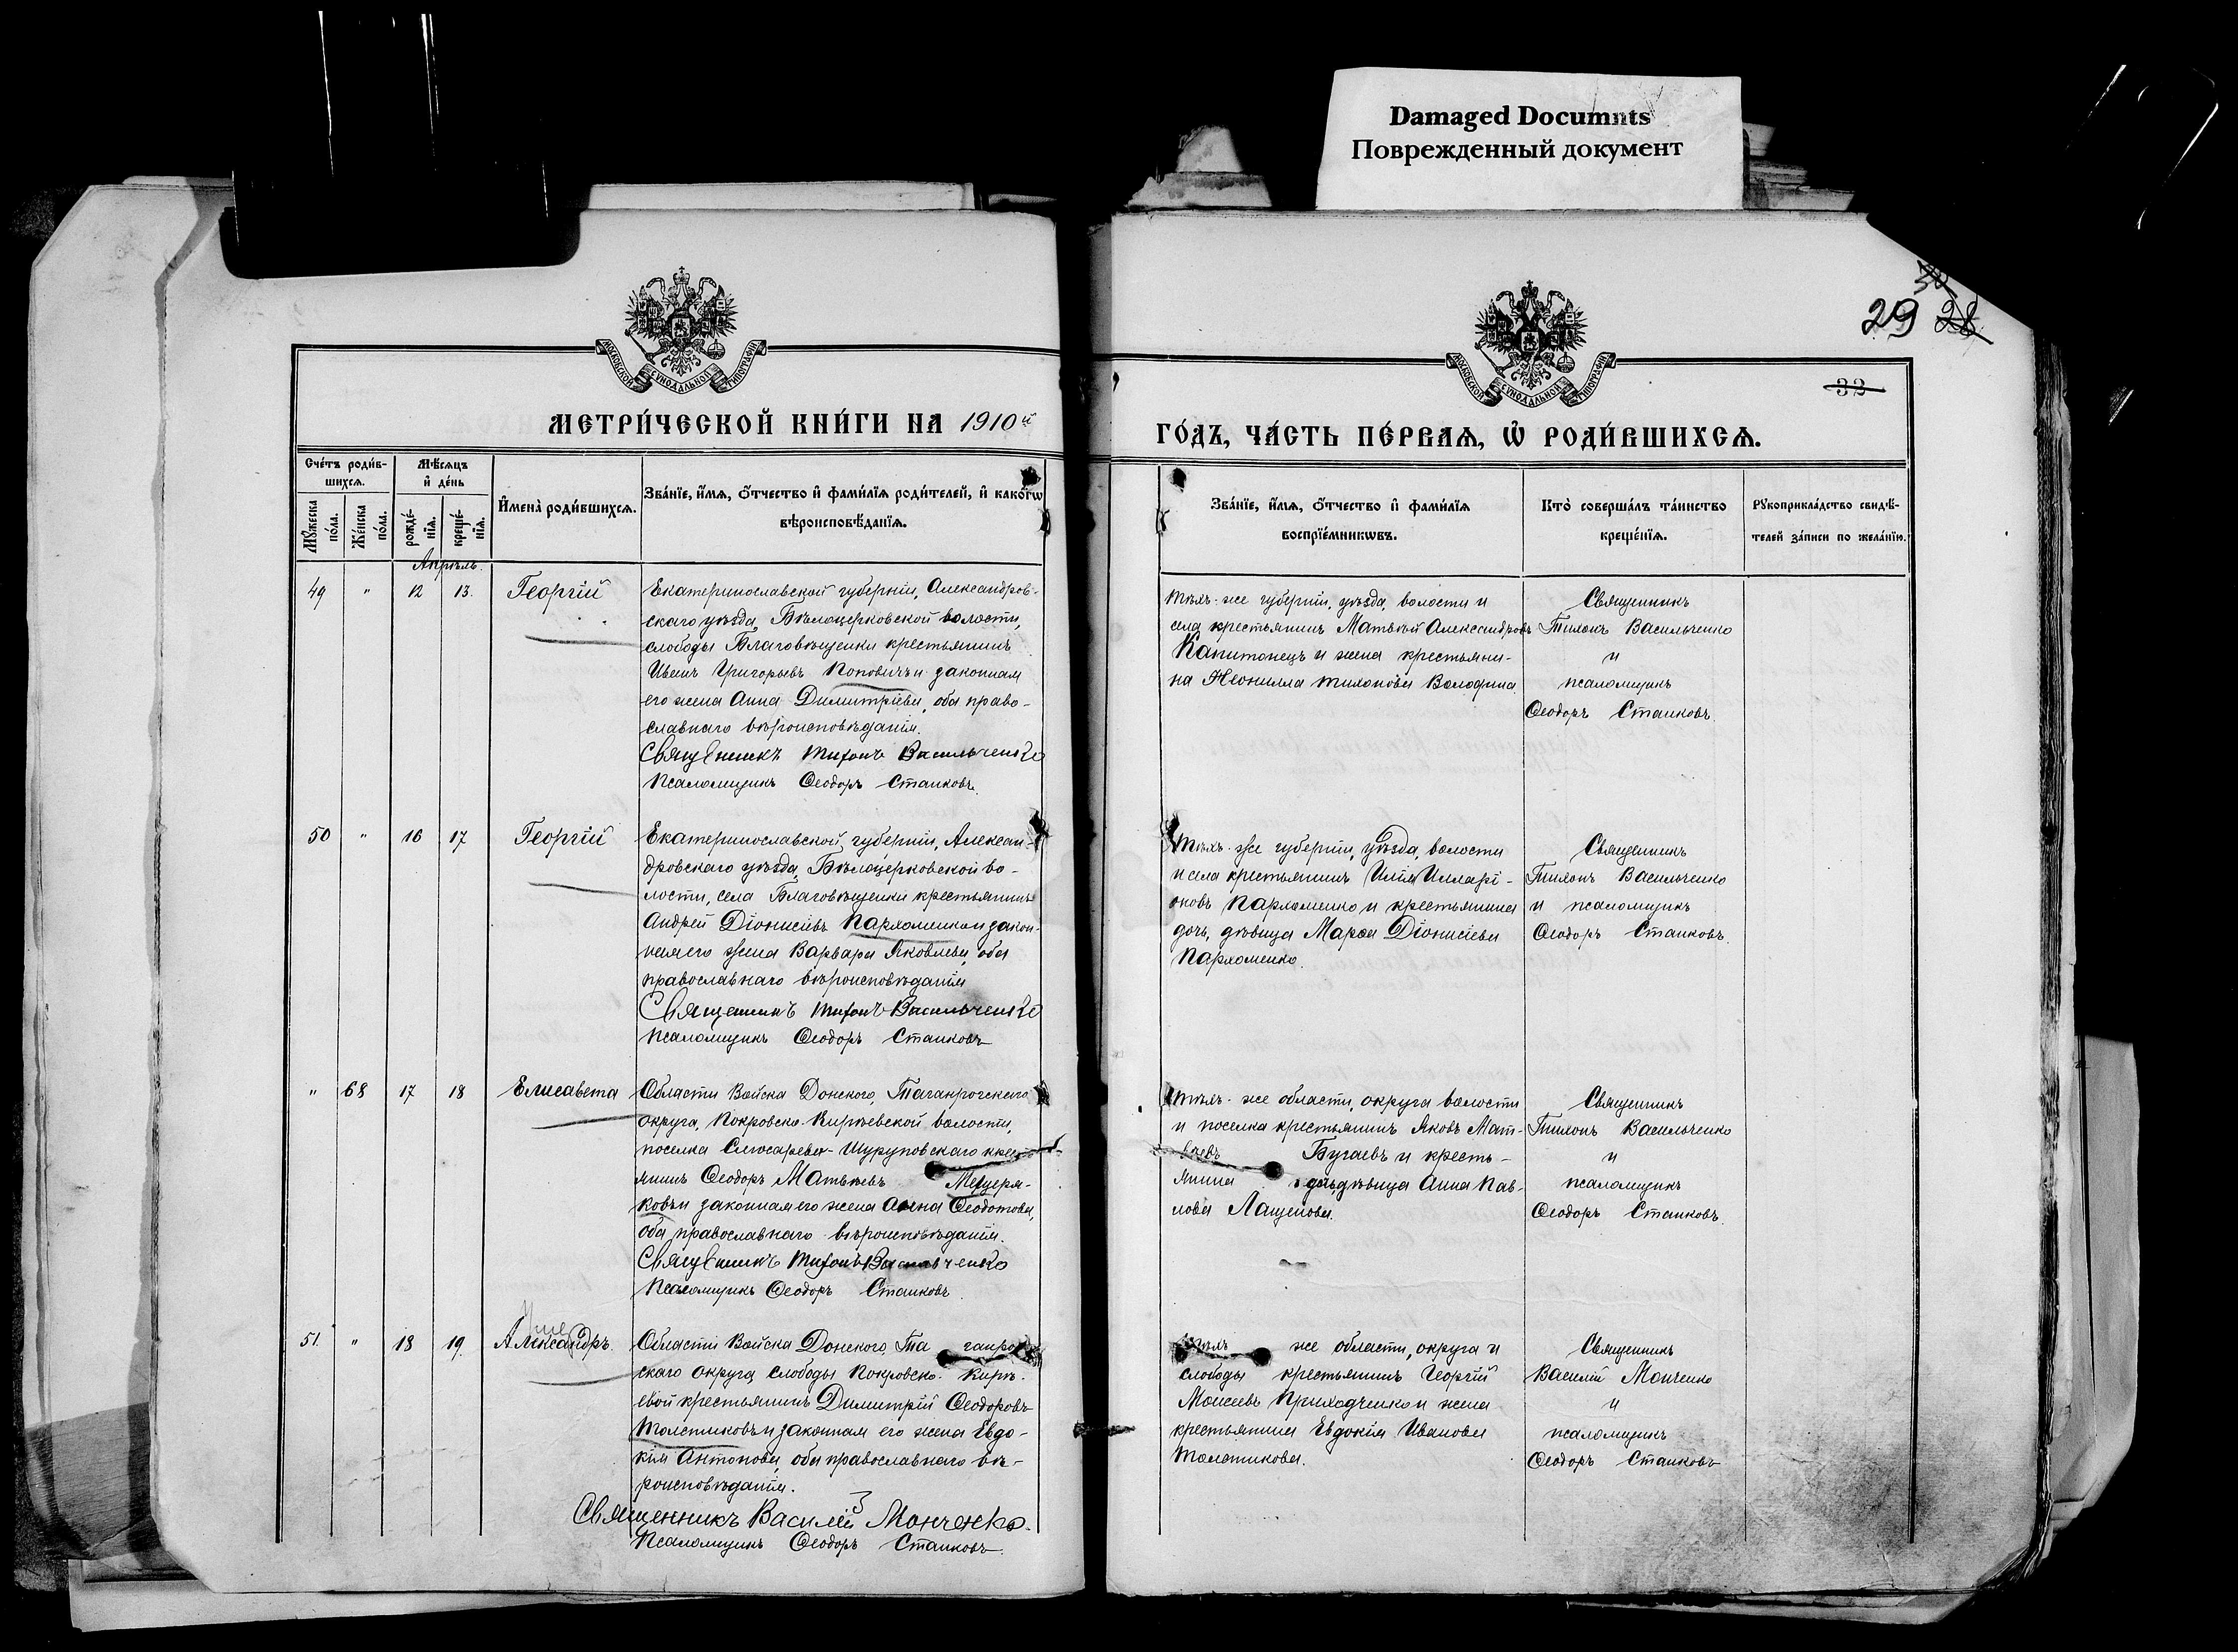 Damaged Documnts
Поврежденный документ
30
29 28
32
МОСКОВСКОЙ СѴНОДАЛЬНОЙ ТИПОГРАФІИ
МОСКОВСКОЙ СѴНОДАЛЬНОЙ ТИПОГРАФІИ
МЕТРИ́ЧЕСКОЙ КНИ́ГИ НА 1910й
ГО́ДЪ, ЧА́СТЬ ПЕ́РВАѦ, Ѡ҆ РОДИ́ВШИХСѦ.
Сче́тъ роди́в-
шихсѧ.
Мѣ́сѧцъ
и҆ де́нь
Мꙋ́жеска
по́ла.
Же́нска
по́ла.
рожде́-
нїѧ.
креще́-
нїѧ.
И҆мена̀ роди́вшихсѧ.
Зва́нїе, и҆́мѧ, ѻ҆́тчество и҆ фами́лїѧ роди́телей, и҆ како́гѡ
вѣроисповѣ́данїѧ.
Зва́нїе, и҆́мѧ, ѻ҆́тчество и҆ фами́лїѧ
воспрїе́мникѡвъ.
Кто̀ соверша́лъ та́инство
креще́нїѧ.
Рꙋкоприкла́дство свидѣ́-
телей за́писи по жела́нїю.
Апрѣль.
49 " 12 13. Георгій
Екатеринославской губерніи, Александров-
скаго уѣзда, Бѣлоцерковской волости,
слободы Благовѣщенки крестьянинъ
Иванъ Григорьевъ Поповичъ и законная
его жена Анна Димитріева, оба право-
славнаго вѣроисповѣданія.
Священникъ Тихонъ Васильченко
Псаломщикъ Ѳеодоръ Станковъ.
тѣхъ-же губерніи, уѣзда, волости и
села крестьянинъ Матѳей Александровъ
Капитонецъ и жена крестьяни-
на Неонилла Тихонова Володина.
Священникъ
Тихонъ Васильченко
и
псаломщикъ
Ѳеодоръ Станковъ.
50 " 16 17 Георгій
Екатеринославской губерніи, Алексан-
дровскаго уѣзда, Бѣлоцерковской во-
лости, села Благовѣщенки крестьянинъ
Андрей Діонисіевъ Пархоменко и закон-
ная его жена Варвара Яковлева, оба
православнаго вѣроисповѣданія
Священникъ Тихонъ Васильченко
Псаломщикъ Ѳеодоръ Станковъ
Тѣхъ-же губерніи, уѣзда, волости
и села крестьянинъ Илія Иларі-
оновъ Пархоменко и крестьянина
дочь, дѣвица Марѳа Діонисіева
Пархоменко.
Священникъ
Тихонъ Васильченко
и псаломщикъ
Ѳеодоръ Станковъ.
" 68 17 18 Елисавета
Области Войска Донского, Таганрогскаго
округа, Покровско-Кирѣевской волости,
поселка Слюсарева-Шуруповскаго крест
янинъ Ѳеодоръ Матвѣевъ Мещеря-
ковъ и законная его жена Анна Ѳеодотова,
оба православнаго вѣроисповѣданія.
Священникъ Тихонъ Васильченко
Псаломщикъ Ѳеодоръ Станковъ.
тѣхъ-же области, округа волости
и поселка крестьянинъ Яковъ Мат-
вѣевъ Бугаевъ и кресть-
янина дочь, дѣвица Анна Пав-
лова Лащенова.
Священникъ
Тихонъ Васильченко
и
псаломщикъ
Ѳеодоръ Станковъ.
51. " 18 19. Александръ.
Области Войска Донского, Та ганрог
скаго округа слободы Покровско-Кирѣ-
евой крестьянинъ Димитрій Ѳеодоровъ
Толстиковъ и законная его жена Евдо-
кія Антонова, оба православнаго вѣ-
роисповѣданія.
Священникъ Василій Монченко.
Псаломщикъ Ѳеодоръ Станковъ.
тѣхъ же области, округа и
слободы крестьянинъ Георгій
Моисеевъ Приходченко и жена
крестьянина Евдокія Иванова
Толстикова.
Священникъ
Василій Монченко
и
псаломщикъ
Ѳеодоръ Станковъ